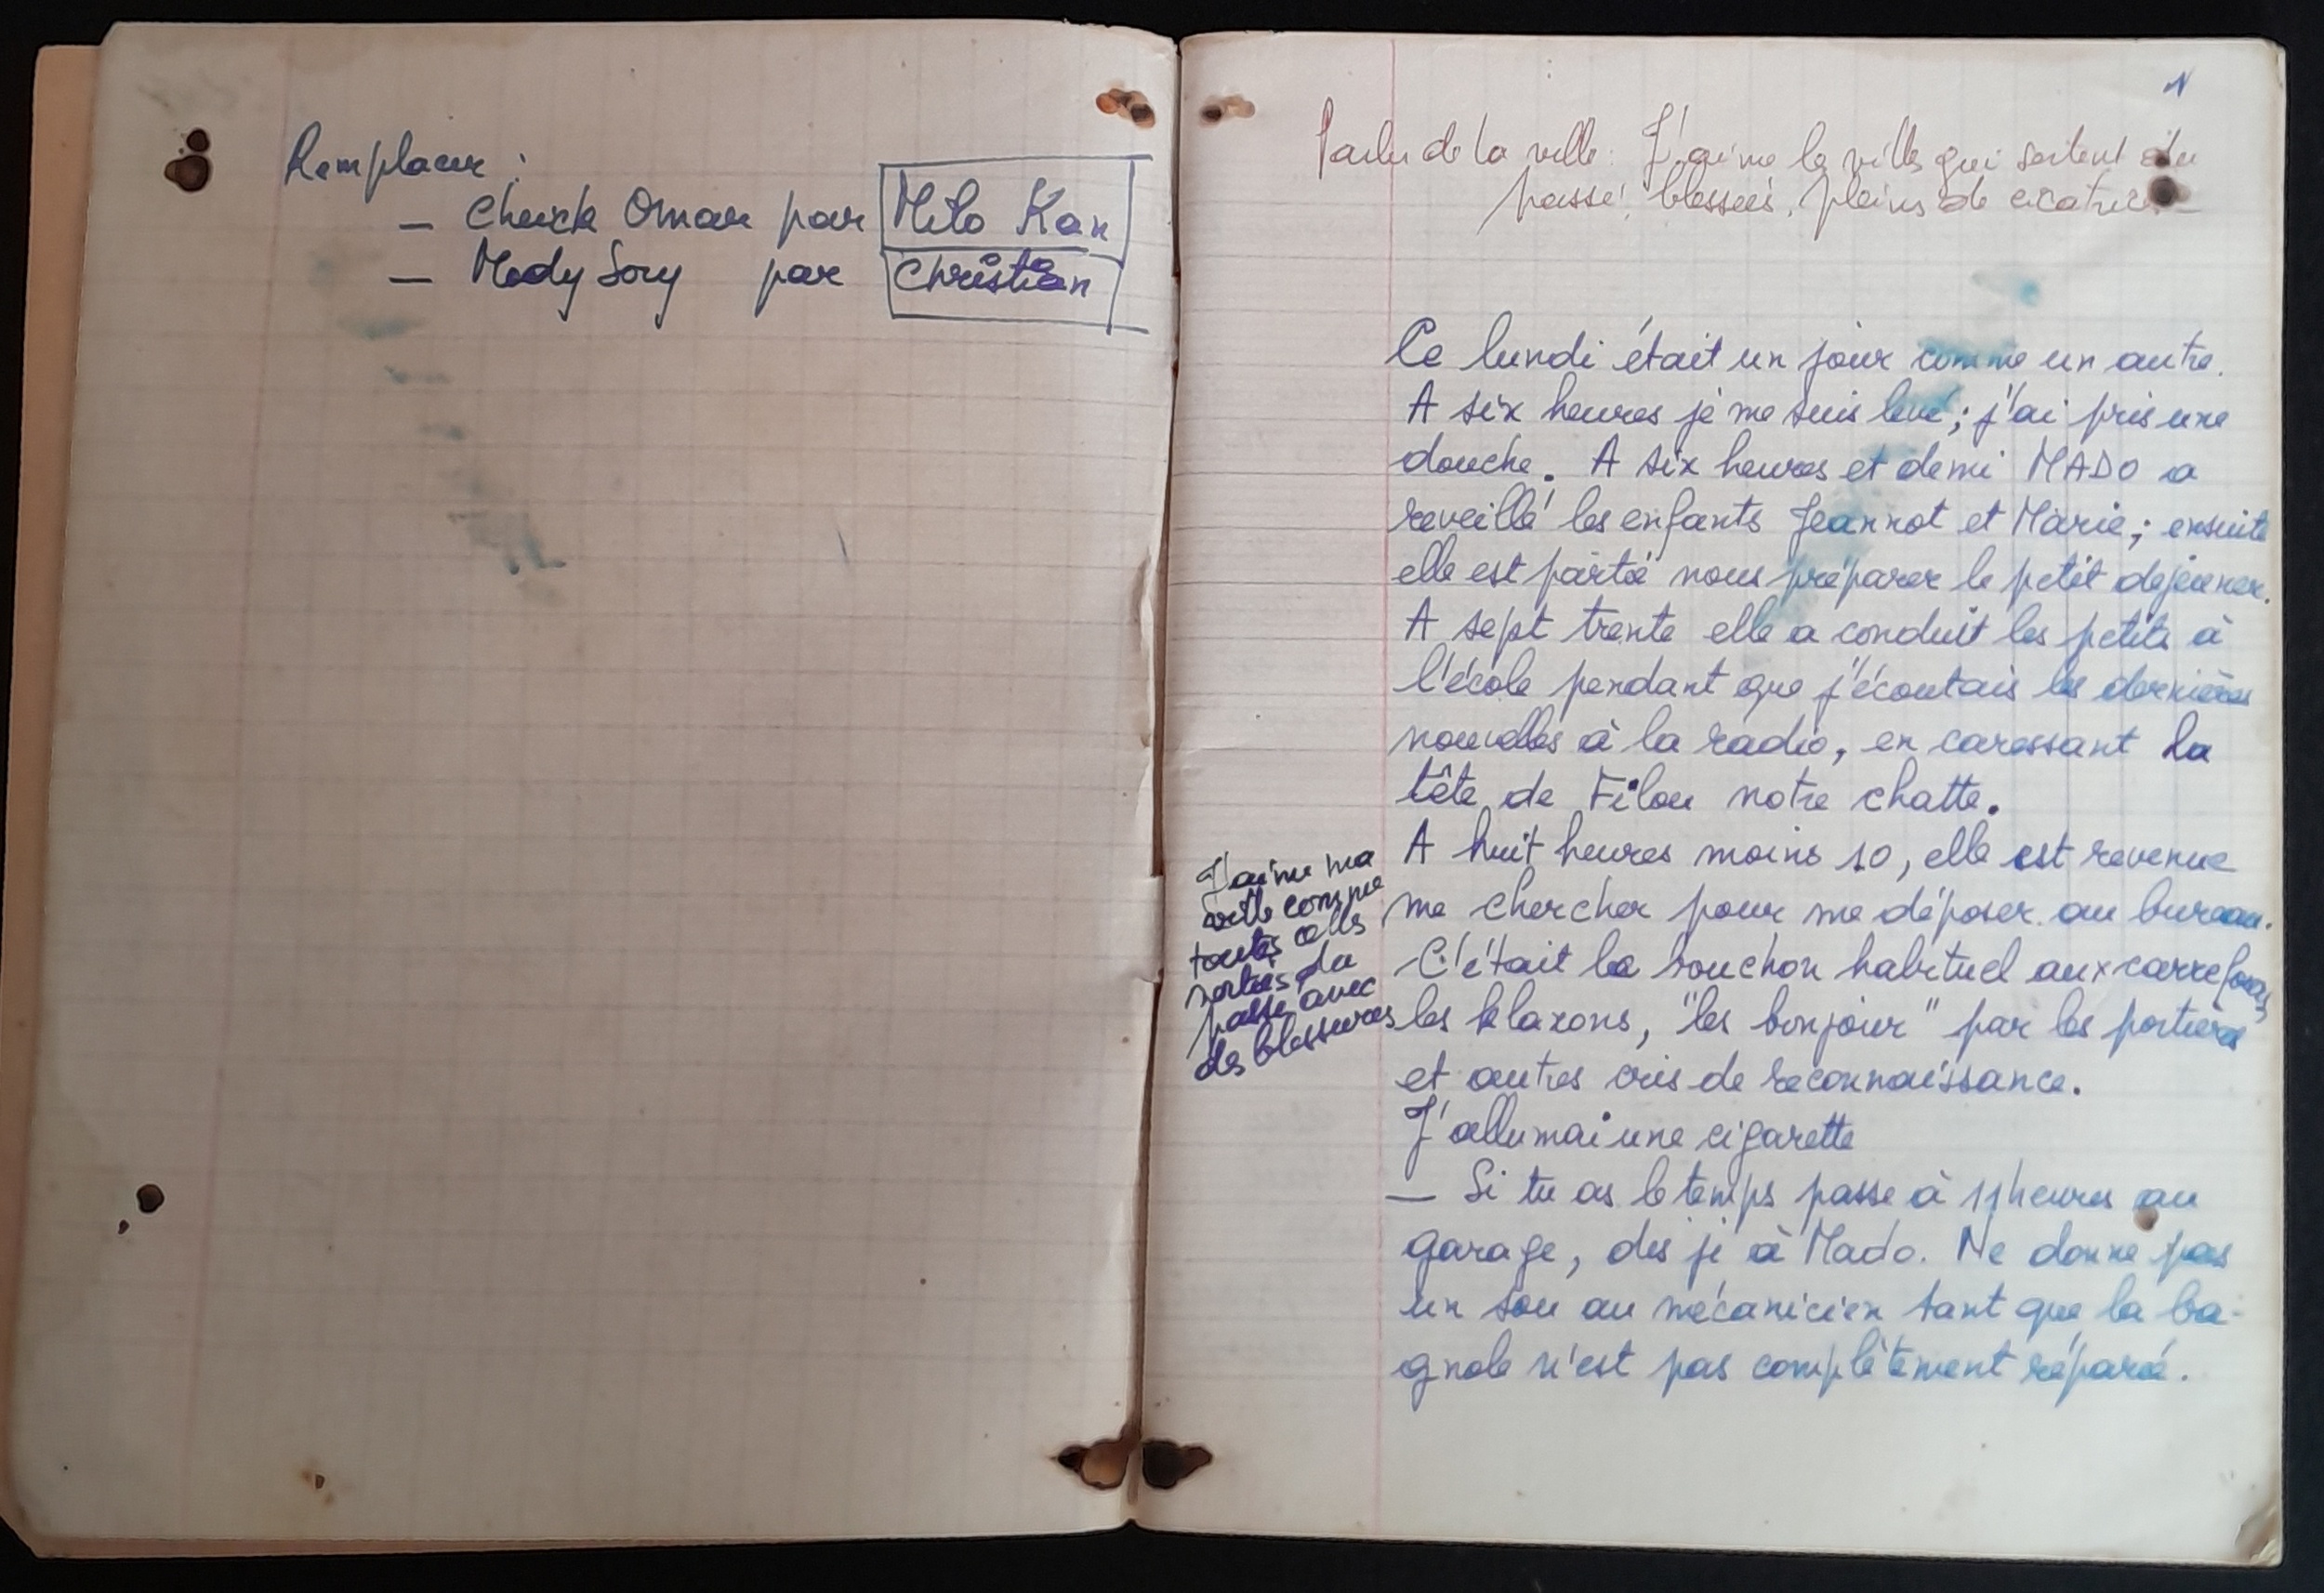 Remplacer :
— Cheick Omar par Milo Kan
— Mody Sory par Christian
1
Parler de la ville : J'aime les villes qui sortent du
passé, blessées, pleins de cicatrices
Ce lundi était un jour comme un autre.
A six heures je me suis levé ; j'ai pris une
douche. A six heures et demi MADO a
reveillé les enfants Jeannot et Marie ; ensuite
elle est partie nous préparer le petit dejeuner.
A sept trente elle a conduit les petits à
l'école pendant que j'écoutais les dernières
nouvelles à la radio, en caressant la
tête de Filou notre chatte.
A huit heures moins 10, elle est revenue
me chercher pour me déposer au bureau.
C'était le bouchon habituel aux carrefours,
les klaxons, "les bonjour" par les portières
et autres cris de reconnaissance.
J'allumai une cigarette
— Si tu as le temps passe à 11 heures au
garage, dis je à Mado. Ne donne pas
un sou au mécanicien tant que la ba-
gnole n'est pas complètement réparé.
J'aime ma
ville comme
toutes celles
sorties du
passé avec
des blessures